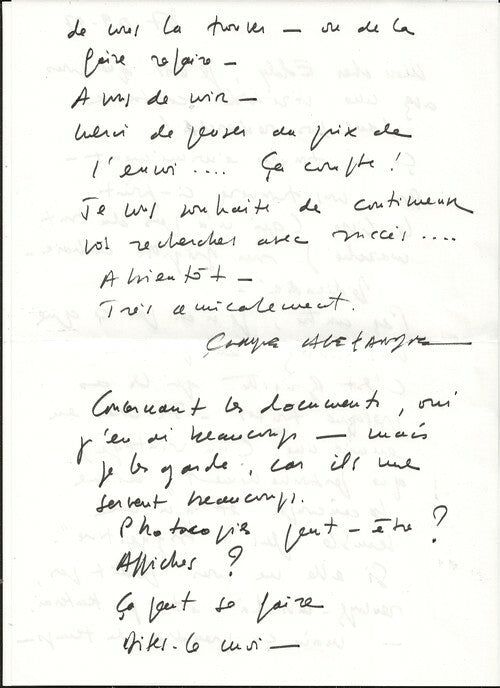 de vous la trouver — ou de la
faire refaire —
A vous de voir —
merci de penser au prix de
l'envoi.... Ça compte !
Je vous souhaite de continuer
vos recherches avec succès....
A bientôt —
Très amicalement.
Concernant les documents, oui
j'en ai beaucoup — mais
je les garde, car ils me
servent beaucoup.
Photocopies peut-être ?
Affiches ?
Ça peut se faire
Dites-le moi —